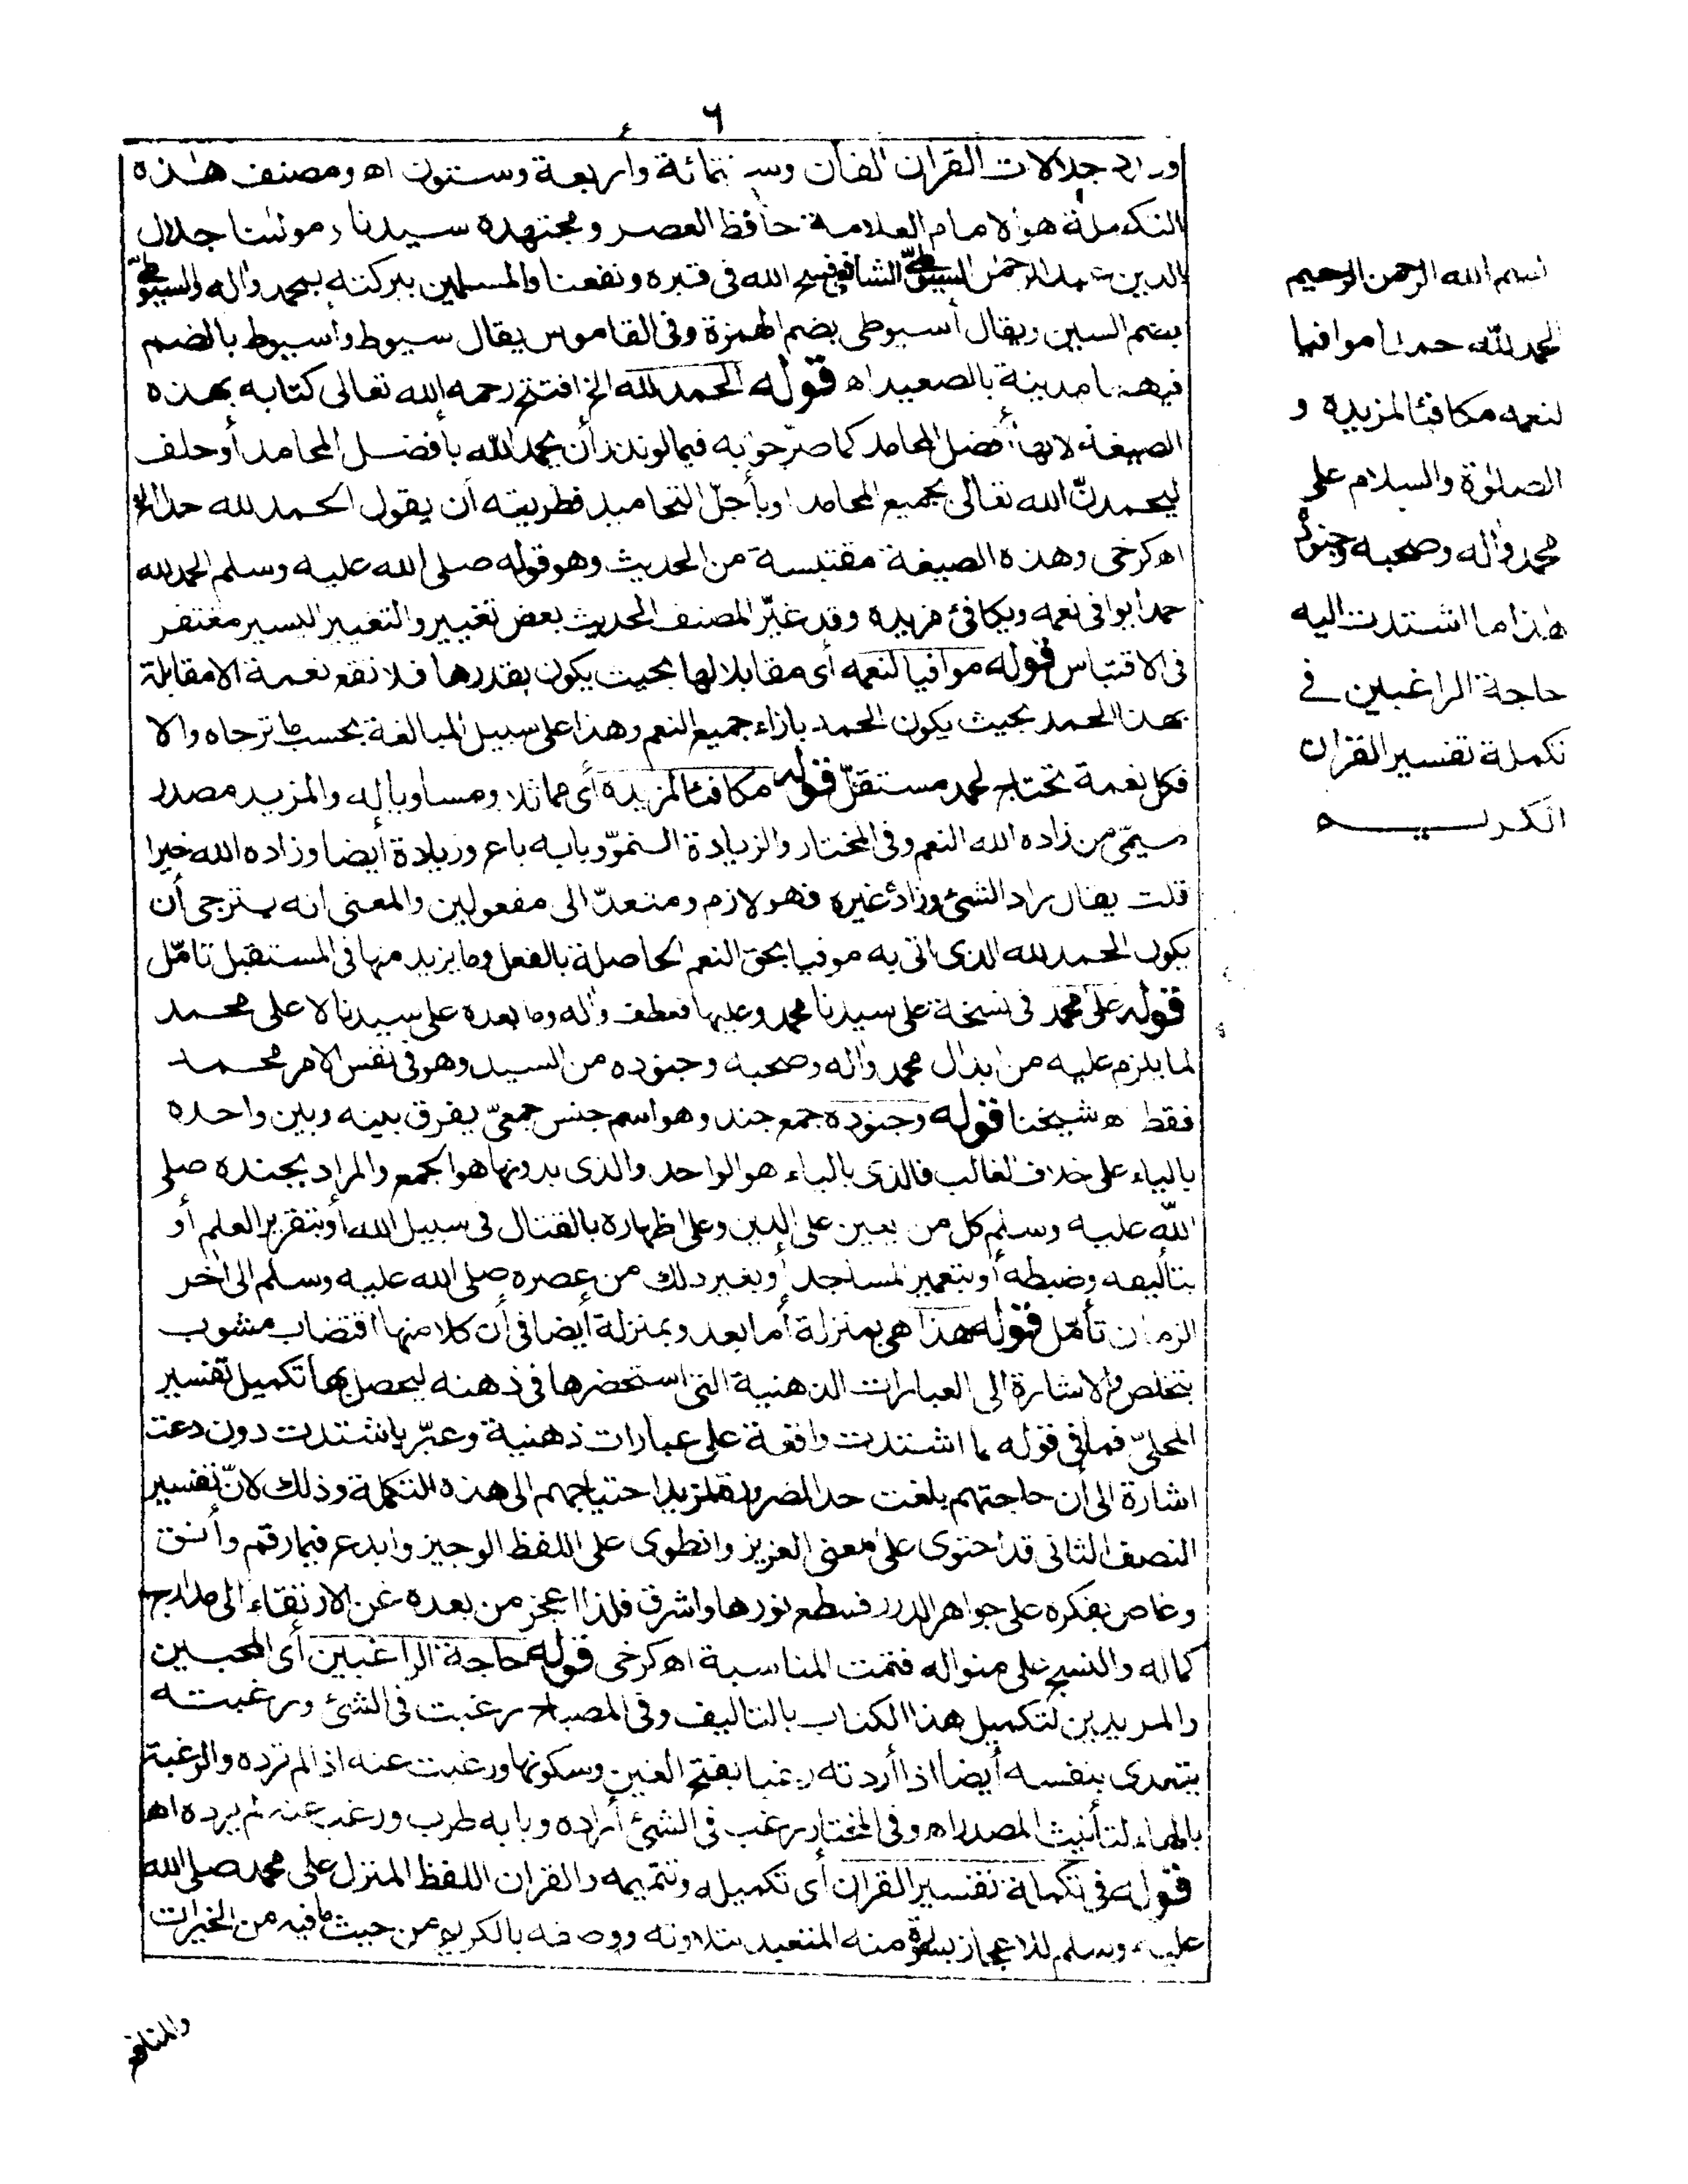 ٦
جلالات القران الفان وستمائة واربعة وستون اه ومصنف هٰذه
التكملة هو الامام العلامة حافظ العصر ومجتهده سيدنا ومولٰنا جلال
الدين عبد الرحمٰن السيوطىّ الشافعى فسح الله فى قبره ونفعنا والمسلمين ببركته بمحمد واٰله والسيوطىّ
بضم السين ويقال أسيوطى بضم الهمزة وفى القاموس يقال سيوط وأسيوط بالضم
فيهما مدينة بالصعيد اه قوله الحمد لله الخ افتتح رحمه الله تعالى كتابه بهذه
الصيغة لانها أفضل المحامد كما صرّحوا به فيما لو نذر أن يحمد اللّٰه بأفضل المحامد أو حلف
ليحمدنّ الله تعالى بجميع المحامد او بأجلّ التحاميد فطريقه أن يقول الحمد لله حمدا الخ
اه كرخى وهذه الصيغة مقتبسة من الحديث وهو قوله صلى الله عليه وسلم الحمد لله
حمدا يوافى نعمه ويكافئ مزيده وقد غيّر المصنف الحديث بعض تغيير والتغيير اليسير مغتفر
فى الاقتباس قوله موافيا لنعمه أى مقابلا لها بحيث يكون بقدرها فلا تقع نعمة الا مقابلة
بهذا الحمد بحيث يكون الحمد بازاء جميع النعم وهذا على سبيل المبالغة بحسب ما ترجاه والا
فكل نعمة تحتاج لحمد مستقلّ قوله مكافئا لمزيده أى مماثلا ومساويا له والمزيد مصدر
ميمّى من زاده الله النعم وفى المختار والزيادة النموّ وبابه باع وزيادة أيضا وزاده الله خيرا
قلت يقال زاد الشئ وزاد غيره فهو لازم ومتعدّ الى مفعولين والمعنى انه يترجى أن
يكون الحمد لله الذى اتى به موفيا بحق النعم الحاصلة بالفعل وما يزيد منها فى المستقبل تامّل
قوله على محمد فى نسخة على سيدنا محمد وعليها فعطف واٰله وما بعده على سيدنا لا على محمد
لما يلزم عليه من ابدال محمد واٰله وصحبه وجنوده من السيد وهو فى نفس الامر محمد
فقط اه شيخنا قوله وجنوده جمع جند وهو اسم جنس جمعىّ يفرق بينه وبين واحده
بالياء على خلاف الغالب فالذى بالياء هو الواحد والذى بدونها هو الجمع والمراد بجنده صلى
اللّٰه عليه وسلم كل من يعين على الدين وعلى اظهاره بالقتال فى سبيل الله أو بتقرير العلم أو
بتأليفه وضبطه أو بتعمير المساجد أو بغير ذلك من عصره صلى الله عليه وسلم الى اٰخر
الزمان تأمّل قوله هذا هى بمنزلة أما بعد وبمنزلة أيضا فى أن كلا منها اقتضاب مشوب
بتخلص والاشارة الى العبارات الذهنية التى استحضرها فى ذهنه ليحصل بها تكميل تفسير
المحلىّ فما فى قوله ما اشتدت واقعة على عبارات ذهنية وعبّر باشتدت دون دعت
اشارة الى أن حاجتهم بلغت حد الضرورة لمزيد احتياجهم الى هذه التكملة وذلك لانّ تفسير
النصف الثانى قد احتوى على معنى العزيز وانطوى على اللفظ الوجيز وابدع فيما رقم وأنق
وغاص بفكره على جواهر الدرر فسطع نورها واشرق فلذا اعجز من بعده عن الارتقاء الى مدارج
كماله والنسج على منواله فتمت المناسبة اه كرخى قوله حاجة الراغبين أى المحبين
والمريدين لتكميل هذا الكتاب بالتاليف وفى المصباح رغبت فى الشئ ورغبته
يتعدى بنفسه أيضا اذا أردته رغبا بفتح الغين وسكونها ورغبت عنه اذا لم ترده والرغبة
بالهاء لتأنيث المصدر اه وفى المختار رغب فى الشئ أراده وبابه طرب ورغب عنه لم يرده اه
قوله فى تكملة تفسير القران أى تكميله وتتميمه والقران اللفظ المنزل على محمد صلى الله
عليه وسلم للاعجاز بسورة منه المتعبد بتلاوته ووصفه بالكريم من حيث ما فيه من الخيرات
والمنافع
بسم الله الرحمن الرحيم
الحمد للّٰه حمدا موافيا
لنعمه مكافئا لمزيده و
الصلٰوة والسلام على
محمد واٰله وصحبه وجنوده
هٰذا ما اشتدت اليه
حاجة الراغبين فى
تكملة تفسير القران
الكريم